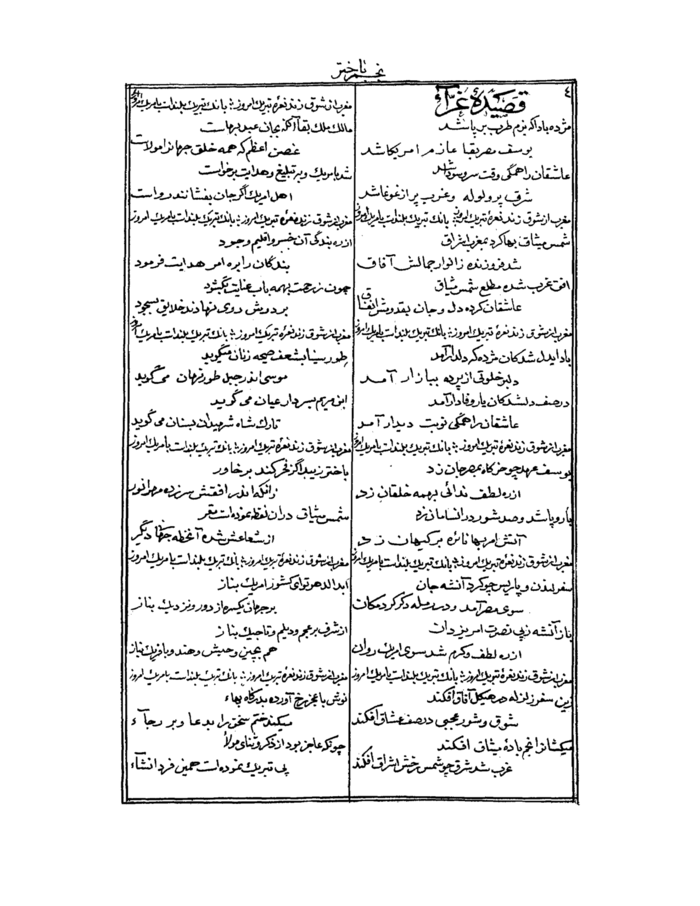 نجم باختر
٤
قصیدهٔ غرّاء
مژده باد آنکه بزم طرب بر پا شد
یوسف مصر بقا عازم امریکا شد
عاشقان را همگی وقت سر و سودا شد
شرق پر ولوله و غرب پر از غوغا شد
مغرب از شوق زند نعرهٔ تبریک امروز : بانک تبریک بلند است بامریک امروز
شمس میثاق بها کرد بمغرب اشراق
شد فروزنده ز انوار جمالش آفاق
افق غرب شده مطلع شمس میثاق
عاشقان کرده دل و جان بقدومش انفاق
مغرب از شوق زند نعرهٔ تبریک امروز : بانک تبریک بلند است بامریک امروز
باد ایدل شدکان مژده که دلدار آمد
دلبر خلوتی از پرده ببازار آمد
در صف دلشدکان یار وفادار آمد
عاشقان را همگی نوبت دیدار آمد
مغرب از شوق زند نعرهٔ تبریک امروز : بانک تبریک بلند است بامریک امروز
یوسف عهد چو خرکاه بمصر جان زد
از ره لطف ندائی بهمه خلقان زد
پاروپا شد و صد شور در انسان زد
آتش امر بها نائره بر کیهان زد
مغرب از شوق زند نعرهٔ تبریک امروز : بانک تبریک بلند است بامریک امروز
سفر لندن و پاریس چو کرد آنشه جان
سوی مصر آمد و در رمله دکر کرد مکان
باز آنشه زپی نصرت امر یزدان
از ره لطف و کرم شد سوی امریک روان
مغرب از شوق زند نعرهٔ تبریک امروز : بانک تبریک بلند است بامریک امروز
زین سفر زلزله در هیکل آفاق افکند
شوق و شور عجبی در صف عشاق افکند
میکشانرا بخم بادهٔ میثاق افکند
غرب شد شرق چو شمس رخش اشراق افکند
مغرب از شوق زند نعرهٔ تبریک امروز : بانک تبریک بلند است بامریک امروز
مالک ملک بقا آنکه بجان عبد بهاست
غصن اعظم که همه خلق جهانرا مولاست
شد بامریک و بر تبلیغ و هدایت برخواست
اهل امریک اگر جان بفشانند رواست
مغرب از شوق زند نعرهٔ تبریک امروز : بانک تبریک بلند است بامریک امروز
از ره بندگی آن خسرو اقلیم وجود
بندگان را بره امر هدایت فرمود
چون ز رحمت بهمه باب عنایت بگشود
بر درش روی نهادند خلایق بسجود
مغرب از شوق زند نعرهٔ تبریک امروز : بانک تبریک بلند است بامریک امروز
طور سینا بشعف صیحه زنان میگوید
موسی اندر جبل طور قرمان می گوید
ابن مریم بسر دار عیان می گوید
تارک شاه شهیدان بسنان می گوید
مغرب از شوق زند نعرهٔ تبریک امروز : بانک تبریک بلند است بامریک امروز
باختر زیبد اگر فخر کند بر خاور
زانکه اندر افقش سر زده مهر انور
شمس میثاق در آن نقطه نموده است مقر
از شعاعش شده آنخطه جهان دیگر
مغرب از شوق زند نعرهٔ تبریک امروز : بانک تبریک بلند است بامریک امروز
ابد الدهر تو ای کشور امریک بناز
بر جهان یکسره از دور و نزدیک بناز
از شرف بر عجم و دیلم و تاجیک بناز
هم بچین و حبش و هند و بافریک بناز
مغرب از شوق زند نعرهٔ تبریک امروز : بانک تبریک بلند است بامریک امروز
نوش با عجز رخ آورده بدرکاه بهاء
میکند ختم سخن را بدعا و بر جآء
چونکه عاجز بود از ذکر و ثنای مولا
پی تبریک نموده است همین فرد انشآء